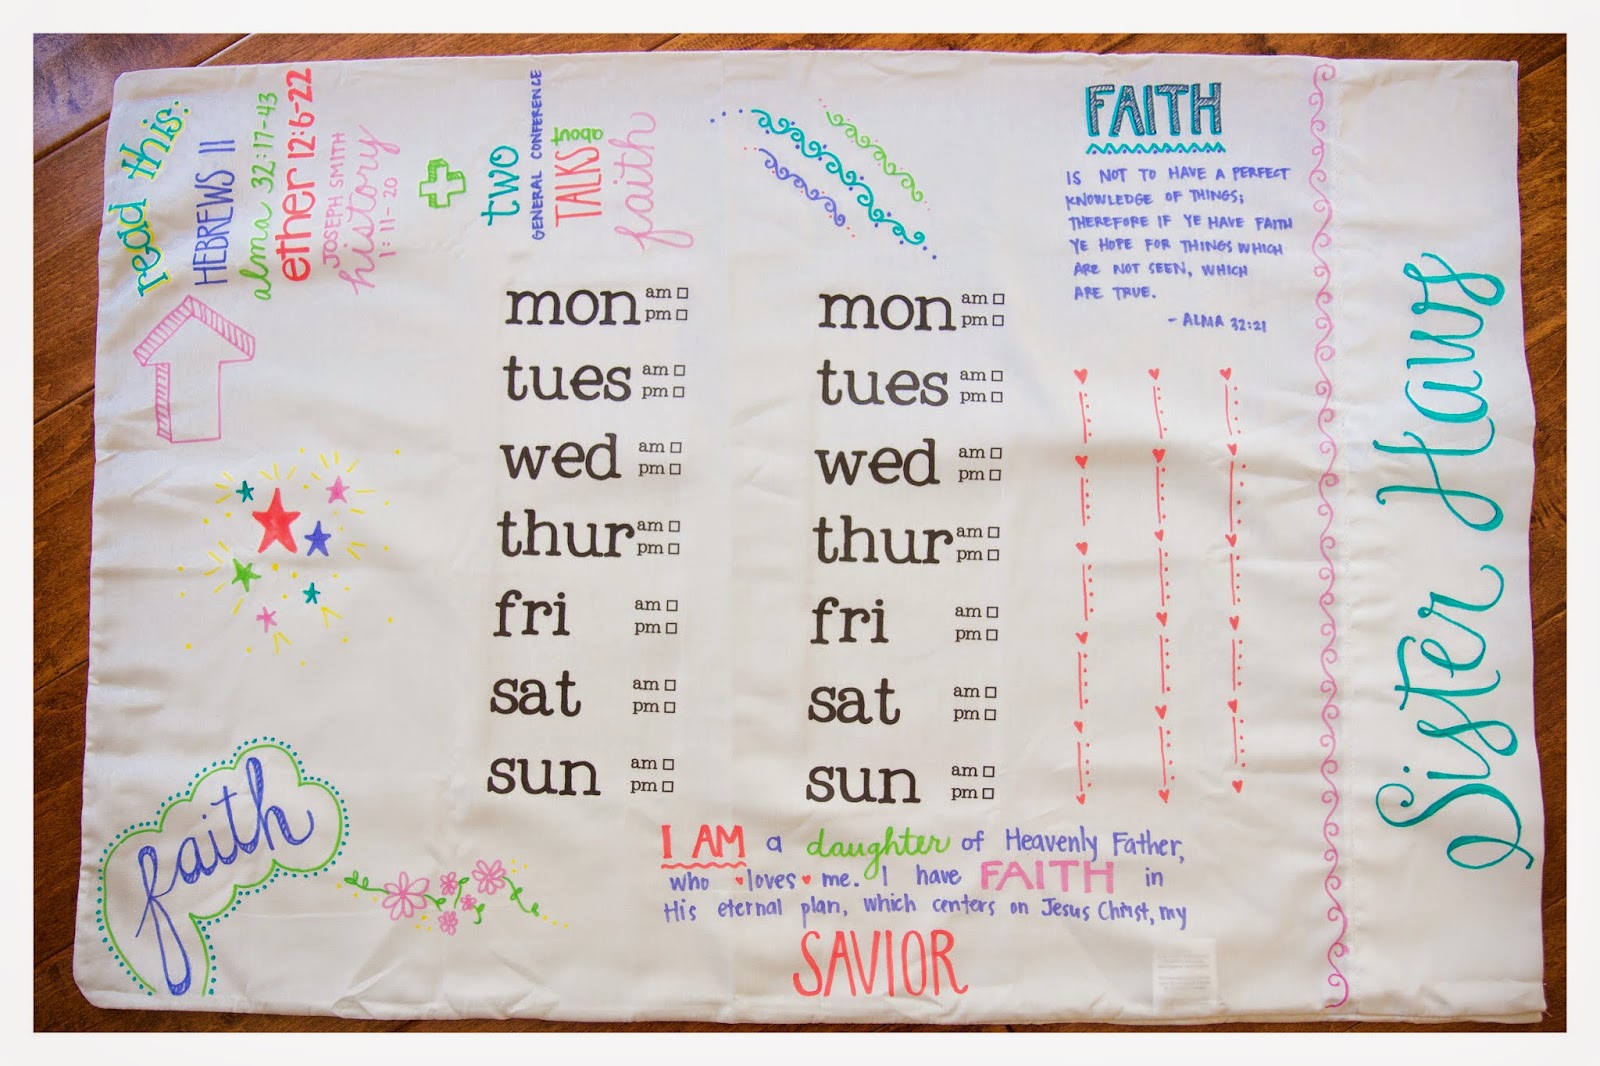 read this:
HEBREWS 11
alma 32:17-43
ether 12:6-22
JOSEPH SMITH
history
1:11-20
two
GENERAL CONFERENCE
TALKS about
faith
mon am
pm
tues am
pm
wed am
pm
thur am
pm
fri am
pm
sat am
pm
sun am
pm
mon am
pm
tues am
pm
wed am
pm
thur am
pm
fri am
pm
sat am
pm
sun am
pm
FAITH
IS NOT TO HAVE A PERFECT
KNOWLEDGE OF THINGS;
THEREFORE IF YE HAVE FAITH
YE HOPE FOR THINGS WHICH
ARE NOT SEEN, WHICH
ARE TRUE.
- ALMA 32:21
faith
I AM a daughter of Heavenly Father,
who loves me. I have FAITH in
His eternal plan, which centers on Jesus Christ, my
SAVIOR
Sister Haws